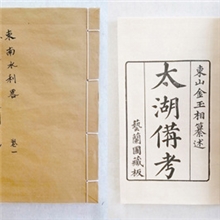 東山金玉相纂述
太湖備考
藝蘭圃藏板
東南水利畧
卷一